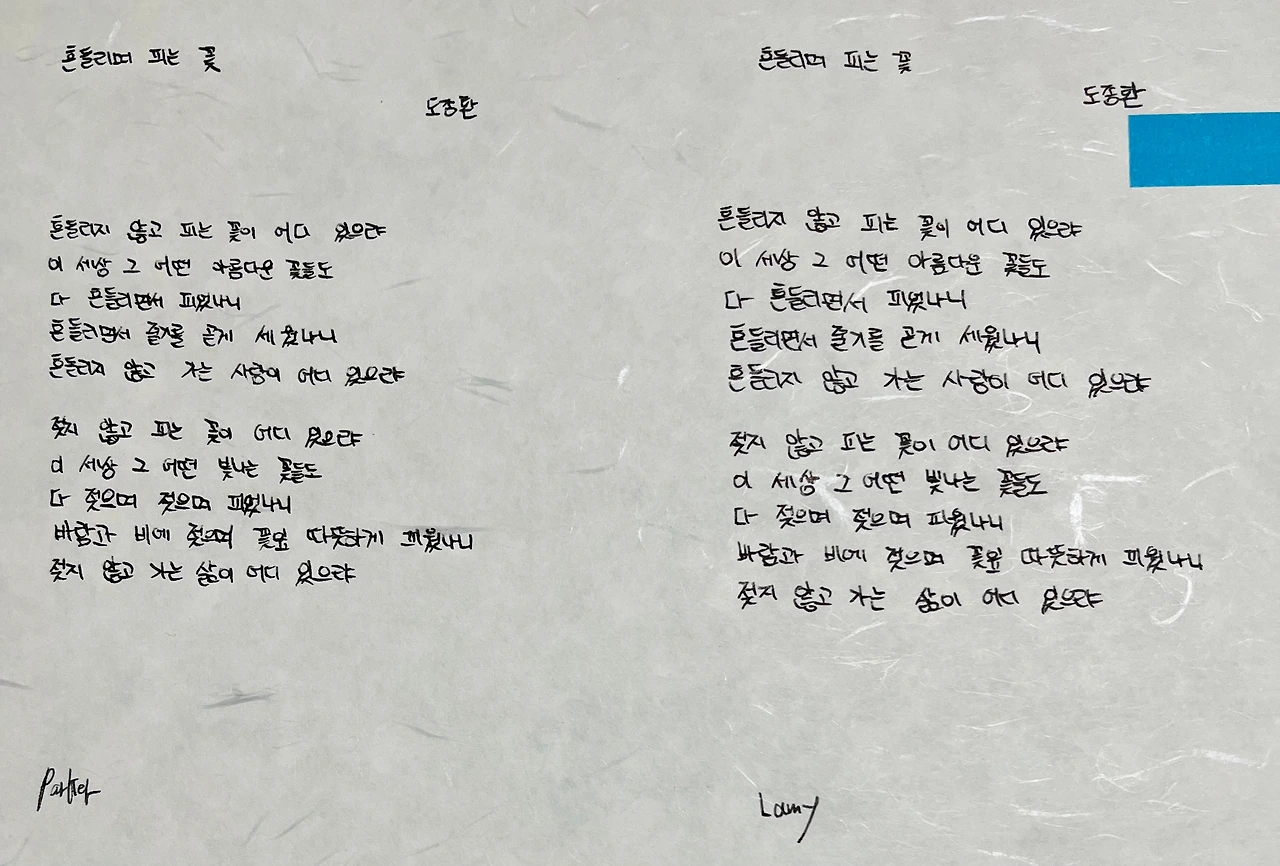 흔들리며 피는 꽃
도종환
흔들리지 않고 피는 꽃이 어디 있으랴
이 세상 그 어떤 아름다운 꽃들도
다 흔들리면서 피었나니
흔들리면서 줄기를 곧게 세웠나니
흔들리지 않고 가는 사랑이 어디 있으랴
젖지 않고 피는 꽃이 어디 있으랴
이 세상 그 어떤 빛나는 꽃들도
다 젖으며 젖으며 피었나니
바람과 비에 젖으며 꽃잎 따뜻하게 피웠나니
젖지 않고 가는 삶이 어디 있으랴
Parker
흔들리며 피는 꽃
도종환
흔들리지 않고 피는 꽃이 어디 있으랴
이 세상 그 어떤 아름다운 꽃들도
다 흔들리면서 피었나니
흔들리면서 줄기를 곧게 세웠나니
흔들리지 않고 가는 사랑이 어디 있으랴
젖지 않고 피는 꽃이 어디 있으랴
이 세상 그 어떤 빛나는 꽃들도
다 젖으며 젖으며 피웠나니
바람과 비에 젖으며 꽃잎 따뜻하게 피웠나니
젖지 않고 가는 삶이 어디 있으랴
Lamy